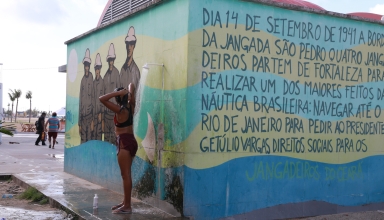 DIA 14 DE SETEMBRO DE 1941 A BORDO
DA JANGADA SÃO PEDRO QUATRO JANGA
DEIROS PARTEM DE FORTALEZA PARA
REALIZAR UM DOS MAIORES FEITOS DA
NÁUTICA BRASILEIRA: NAVEGAR ATÉ O
RIO DE JANEIRO PARA PEDIR AO PRESIDENTE
GETÚLIO VARGAS DIREITOS SOCIAIS PARA OS
JANGADEIROS DO CEARÁ